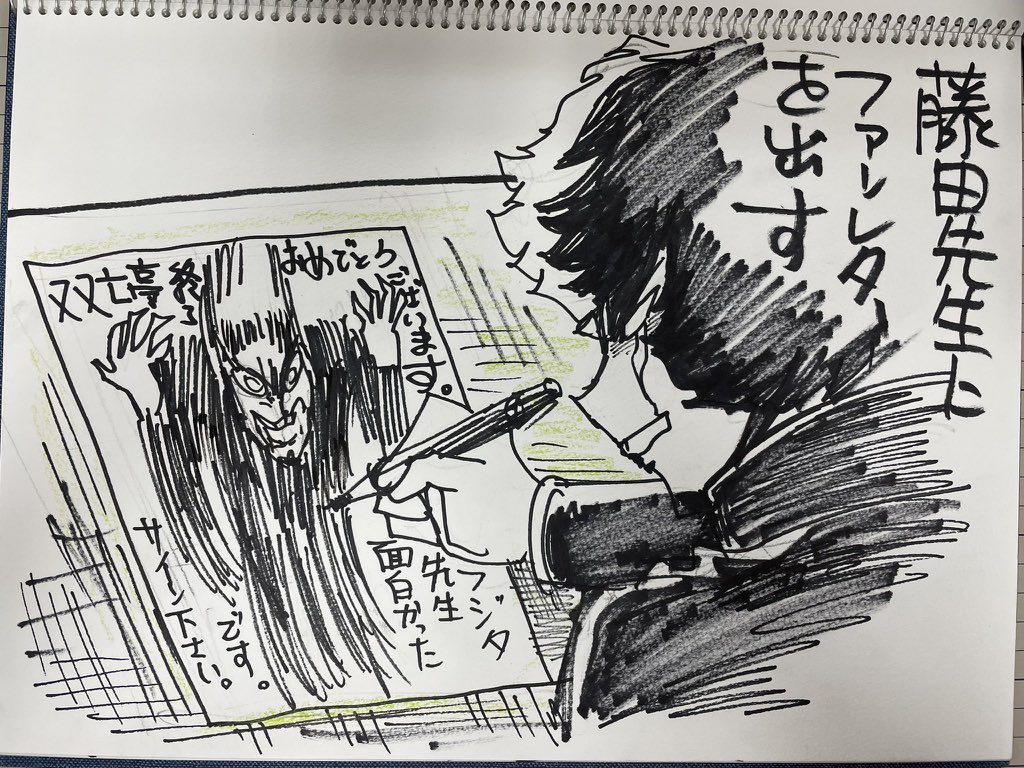 藤田先生に
ファンレター
を出す
双亡亭終了
おめでとう
ございます。
フジタ
先生
面白かった
です。
サイン下さい。